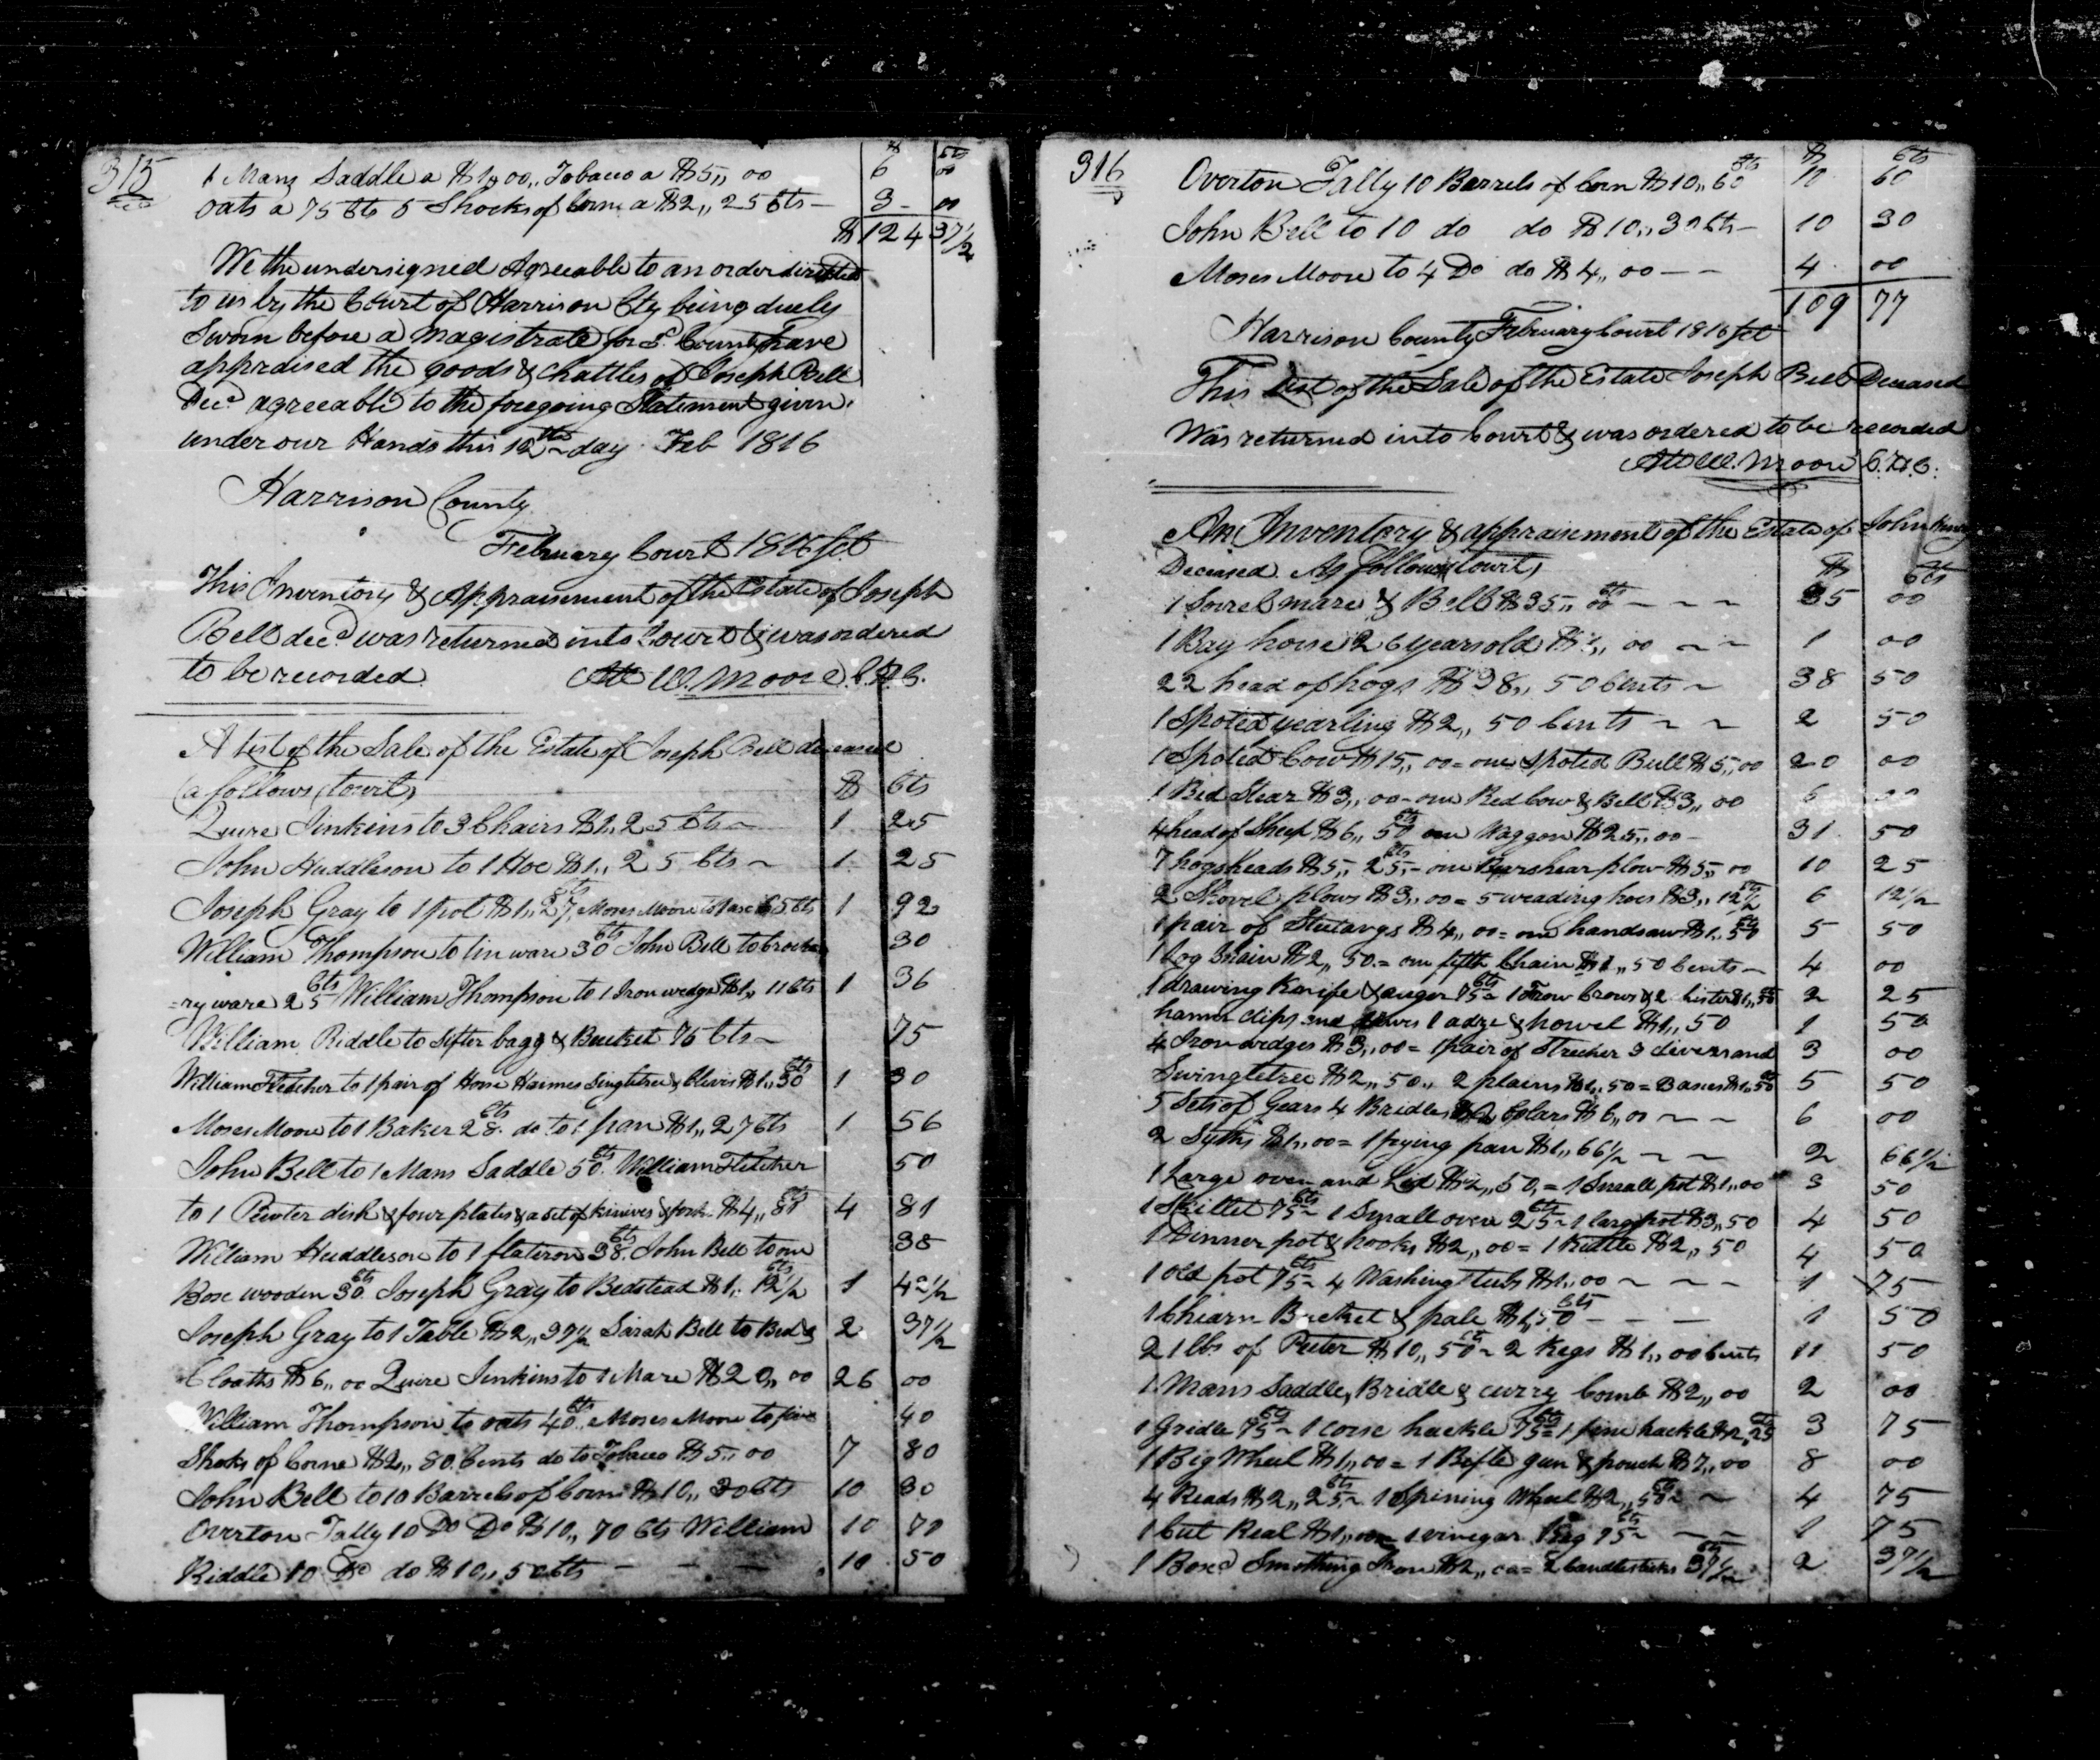 315
$ Cts
1 Mans Saddle a $1,,00,, Tobacco a $5,, 00 6 00
oats a 75 Cts 5 Shocks of Corn a $2,, 25 Cts — 3 - 00
$ 124 37½
We the undersigned Agreeable to an order directed
to us by the Court of Harrison Cty being duely
Sworn before a Magistrate for Sd. County have
appraised the goods & Chattles of Joseph Bell
Decd. agreeable to the foregoing Statement given
under our Hands this 12th day Feb 1816
Harrison County
February Court 1816 Sct
This Inventory & Appraisement of the Estate of Joseph
Bell decd was returned into Court & was ordered
to be recorded Att W. Moore C.H.C.
A List of the Sale of the Estate of Joseph Bell deceased
(a follows (towit) $ Cts
Quire Jinkins to 3 Chairs $1,, 25 Cts ~ 1 25
John Huddleson to 1 Hoe $1,, 25 Cts ~ 1 25
Joseph Gray to 1 pot $1,, 27 Cts, Moses Moore to 1 axe 65 Cts 1 92
William Thompson to tin ware 30 Cts John Bell to crocke 30
=ry ware 25 Cts William Thompson to 1 Iron wedge $1,, 11 Cts 1 36
William Riddle to Sifter bagg & Bucket 75 Cts ~ 75
William Fletcher to 1 pair of Horse Haimes Singletree & Clevis $1,, 30 Cts 1 30
Moses Moore to 1 Baker 28 Cts. do to 1 pan $1,, 27 Cts 1 56
John Bell to 1 Mans Saddle 50 Cts. William Fletcher 50
to 1 Pewter dish & four plates & a Set of knives & forks $4,, 81 Cts 4 81
William Huddleson to 1 flatiron 38 Cts. John Bell to one 38
Box wooden 30 Cts. Joseph Gray to Bedstead $1,, 12½ Cts 1 42½
Joseph Gray to 1 Table $2,, 37½ Sarah Bell to Bed & 2 37½
Cloaths $6,, 00 Quire Jinkins to 1 Mare $20,, 00 26 00
William Thompson to oats 40 Cts. Moses Moore to five 40
Shoks of Corne $2,, 80 Cents do to Tobacco $5,, 00 7 80
John Bell to 10 Barrels of Corn $10,, 30 Cts 10 30
Overton Tally 10 Do Do $10,, 70 Cts William 10 70
Riddle 10 Do do $10,, 50 Cts — — — 10 50
316
$ Cts
Overton Tally 10 Barrels of Corn $10,, 60 Cts 10 60
John Bell to 10 do do $10,, 30 Cts — 10 30
Moses Moore to 4 Do do $4,, 00 — — 4 00
109 77
Harrison County February Court 1816 Sct
This List of the Sale of the Estate Joseph Bell Deceased
Was returned into Court & was ordered to be recorded
Att W. Moore C.H.C.
An Inventory & appraisement of the Estate of John
Deceased. As follows (towit) $ Cts
1 Sorrel mare & Bell $35,, 00 Cts — ~ ~ 35 00
1 Bay horse 26 years old $1,, 00 ~ ~ 1 00
22 head of hogs $38,, 50 Cents ~ 38 50
1 Spoted yearling $2,, 50 Cents ~ ~ 2 50
1 Spoted Cow $15,, 00 = one Spoted Bull $5,, 00 20 00
1 Red Stear $3,, 00 - one Red Cow & Bell $3,, 00 6 00
4 head of Sheep $6,, 50 Cts one Waggon $25,, 00 - 31 50
7 hogsheads $5,, 25 Cts,- one Barshear plow $5,, 00 10 25
2 Shovel plows $3,, 00 = 5 weading hoes $3,, 12½ Cts 6 12½
1 pair of Steelargs $4,, 00 = one handsaw $1,, 50 Cts 5 50
1 log Chain $2,, 50. = one fifth Chain $1,, 50 Cents ~ 4 00
1 drawing Knife & auger 75 Cts = 1 Frow Crows & 2 Chisters $1,, 50 Cts 2 25
hamer clips and 1 adze & howel $1,, 50 1 50
4 Iron wedges $3,, 00 = 1 pair of Strecher 3 clivers and 3 00
Swingletree $2,, 50,, 2 plains $1,, 50 = 3 axes $1,, 50 Cts 5 50
5 Sets of Gears 4 Bridles Colars $6,, 00 ~ ~ 6 00
2 Syths $1,, 00 = 1 frying pan $1,, 66½ ~ ~ 2 66½
1 Large oven and Lid $2,, 50, = 1 Small pot $1,, 00 3 50
1 Skillet 75 Cts ~ 1 Small oven 25 Cts ~ 1 larg pot $3,, 50 4 50
1 Dinner pot & hooks $2,, 00 = 1 Kittle $2,, 50 4 50
1 old pot 75 Cts ~ 4 Washing tubs $1,, 00 ~ ~ ~ 1 75
1 Chiarn Bucket & pale $1,, 50 Cts — — — 1 50
21 lbs of Puter $10,, 50 Cts ~ 2 Kegs $1,, 00 Cents 11 50
1 Mans Saddle, Bridle & curry Comb $2,, 00 2 00
1 Gridle 75 Cts ~ 1 Corse hackle 75 Cts = 1 fine hackle $2,, 25 Cts 3 75
1 Big Wheel $1,, 00 = 1 Rifle gun & pouch $7,, 00 8 00
4 Reads $2,, 25 Cts ~ 1 Spining Wheel $2,, 50 Cts ~ ~ 4 75
1 Cut Real $1,, 00 = 1 vinegar Keg 75 Cts ~ — ~ 1 75
1 Boxd Smothing Iron $2,, 00 = 2 Candlesticks 37½ Cts 2 37½